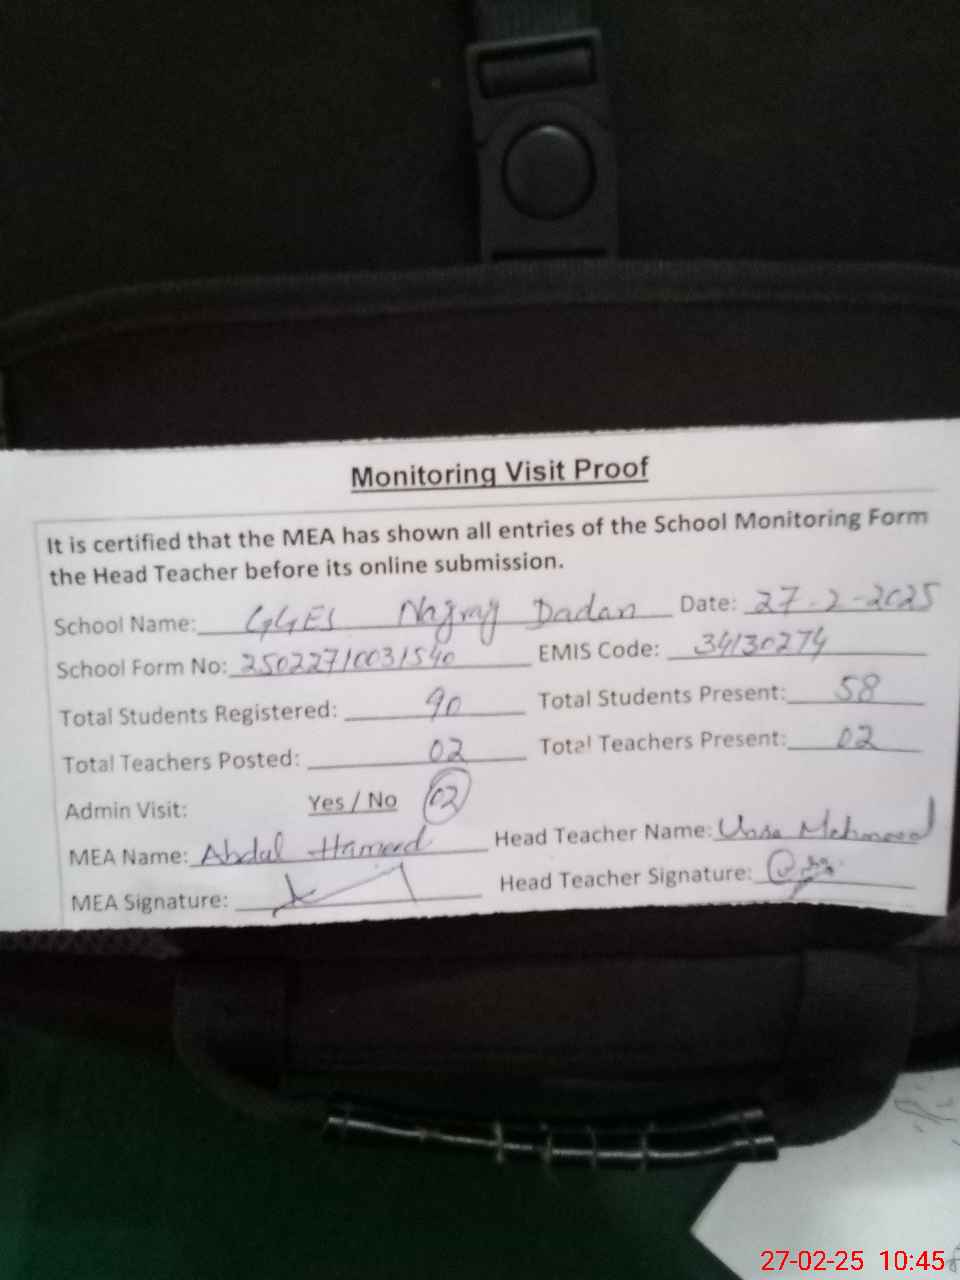 Monitoring Visit Proof
It is certified that the MEA has shown all entries of the School Monitoring Form
the Head Teacher before its online submission.
School Name: GGES Nagray Dadan Date: 27-2-2025
School Form No: 25022710031540 EMIS Code: 34130274
Total Students Registered: 90 Total Students Present: 58
Total Teachers Posted: 02 Total Teachers Present: 02
Admin Visit: Yes / No 02
MEA Name: Abdul Hameed Head Teacher Name: Mehmood
MEA Signature: Head Teacher Signature:
27-02-25 10:45